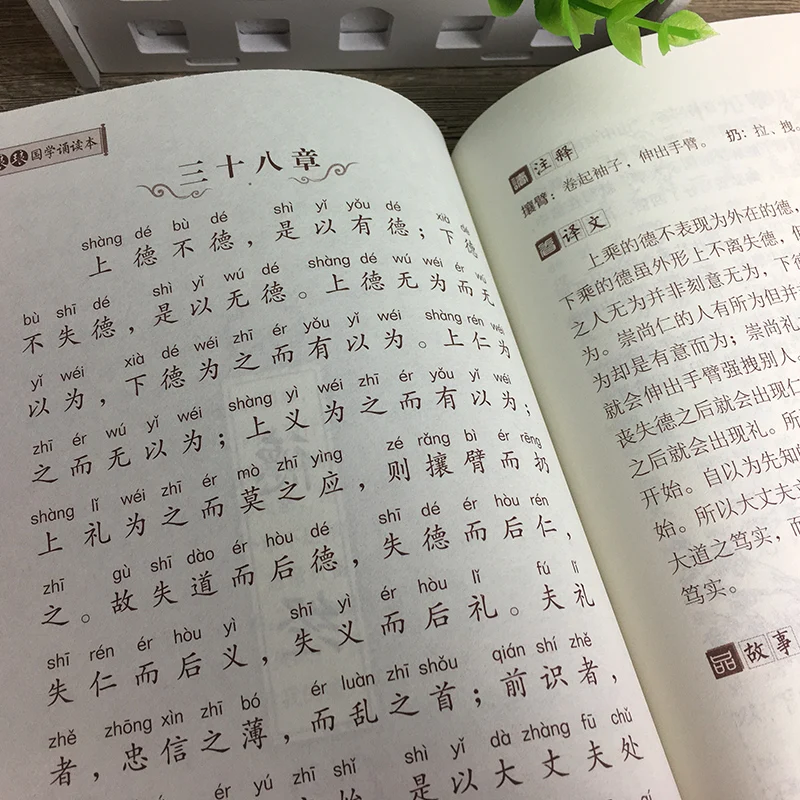 国学诵读本
三十八章
shàng dé bù dé shì yǐ yǒu dé xià dé
上德不德，是以有德；下德
bù shī dé shì yǐ wú dé shàng dé wú wéi ér wú
不失德，是以无德。上德无为而无
yǐ wéi xià dé wéi zhī ér yǒu yǐ wéi shàng rén wéi
以为，下德为之而有以为。上仁为
zhī ér wú yǐ wéi shàng yì wéi zhī ér yǒu yǐ wéi
之而无以为；上义为之而有以为；
shàng lǐ wéi zhī ér mò zhī yìng zé rǎng bì ér rēng
上礼为之而莫之应，则攘臂而扔
zhī gù shī dào ér hòu dé shī dé ér hòu rén
之。故失道而后德，失德而后仁，
shī rén ér hòu yì shī yì ér hòu lǐ fú lǐ
失仁而后义，失义而后礼。夫礼
zhě zhōng xìn zhī bó ér luàn zhī shǒu qián shí zhě
者，忠信之薄，而乱之首；前识者，
ér yú zhī shǐ shì yǐ dà zhàng fū chǔ
是以大丈夫处
注释
攘臂：卷起袖子，伸出手臂。 扔：拉、拽。
译文
上乘的德不表现为外在的德，
下乘的德虽外形上不离失德，
之人无为并非刻意无为，下德
为。崇尚仁的人有所为但并
为却是有意而为；崇尚礼
就会伸出手臂强拽别人。
丧失德之后就会出现仁
之后就会出现礼。所
开始。自以为先知的
始。所以大丈夫立
大道之笃实，而
笃实。
品故事